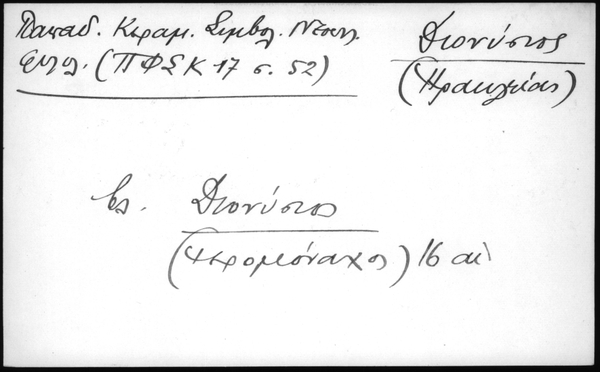 Παπαδ. Κεραμ. Συμβολ. Νεοελ.
Φιλολ. (ΠΦΣΚ 17 σ. 52)
Διονύσιος
(Ηρακλείας)
βλ. Διονύσιος
(ιερομόναχος) 16 αἰ